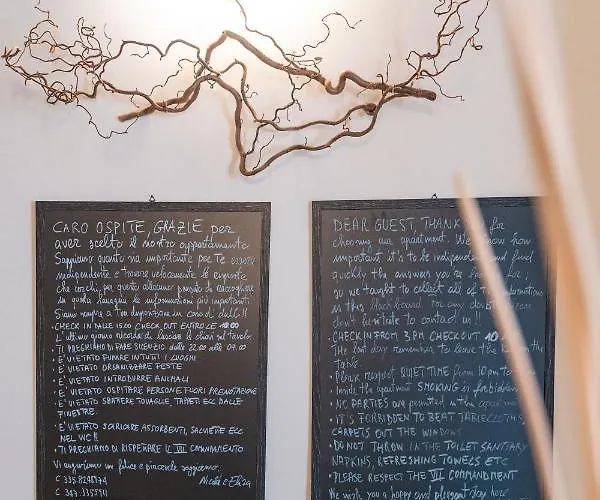 CARO OSPITE, GRAZIE per
aver scelto il nostro appartamento
Sappiamo quanto sia importante per te essere
indipendente e trovare velocemente le risposte
che cerchi, per questo abbiamo pensato di raccogliere
in questa lavagna le informazioni più importanti.
Siamo sempre a tua disposizione in caso di dubbi!!
• CHECK IN DALLE 15.00 CHECK OUT ENTRO LE 10.00
L'ultimo giorno ricorda di lasciare le chiavi sul tavolo.
• TI PREGHIAMO DI FARE SILENZIO dalle 22.00 alle 07.00
• E' VIETATO FUMARE IN TUTTI I LUOGHI
• E' VIETATO ORGANIZZARE FESTE
• E' VIETATO INTRODURRE ANIMALI
• E' VIETATO OSPITARE PERSONE FUORI PRENOTAZIONE
• E' VIETATO SBATTERE TOVAGLIE, TAPPETI ECC DALLE
FINESTRE.
• E' VIETATO SCARICARE ASSORBENTI, SALVIETTE ECC
NEL WC!!
• TI PREGHIAMO DI RISPETTARE IL VII COMANDAMENTO
Vi auguriamo un felice e piacevole soggiorno
Nicola e Eliza
DEAR GUEST, THANK for
choosing our apartment. We know how
important it's to be independent and find
quickly the answers you're looking for,
so we taught to collect all of the informations
in this blackboard. For any doubt please
don't hesitate to contact us!!
• CHECK IN FROM 3 PM CHECK OUT 10
The last day remember to leave the on the
table.
• Please respect QUIET TIME from 10 pm to
• Inside the apartment SMOKING is forbidden
• NO PARTIES are permitted in the apartment
• IT'S FORBIDDEN TO BEAT TABLECLOTHS,
CARPETS OUT THE WINDOWS
• DO NOT THROW IN THE TOILET SANITARY
NAPKINS, REFRESHING TOWELS ETC
• PLEASE RESPECT THE VII COMMANDMENT
We wish you a happy and pleasant stay here